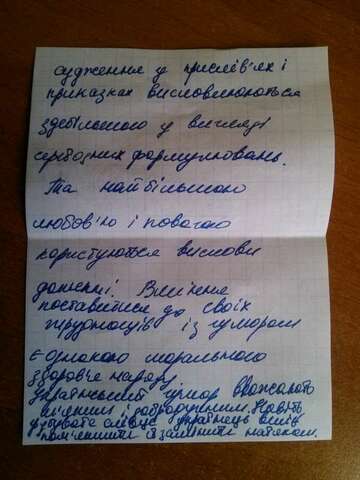 судження у прислів'ях і
приказках висловлюються
здебільшого у вигляді
серйозних формулювань.
Та найбільшою
любов'ю і повагою
користуються вислови
дотепні. Вміння
поставитися до своїх
труднощів із гумором
є ознакою морального
здоров'я народу.
Український гумор вважають
м'яким і добродушним. Навіть
слівце українець вміє
пом'якшити й замінити натяком.